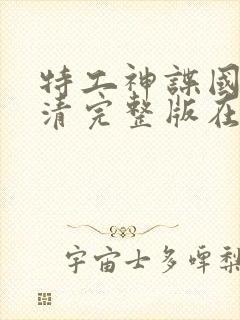 特工神諜國
清完整版在
宇宙士多啤梨